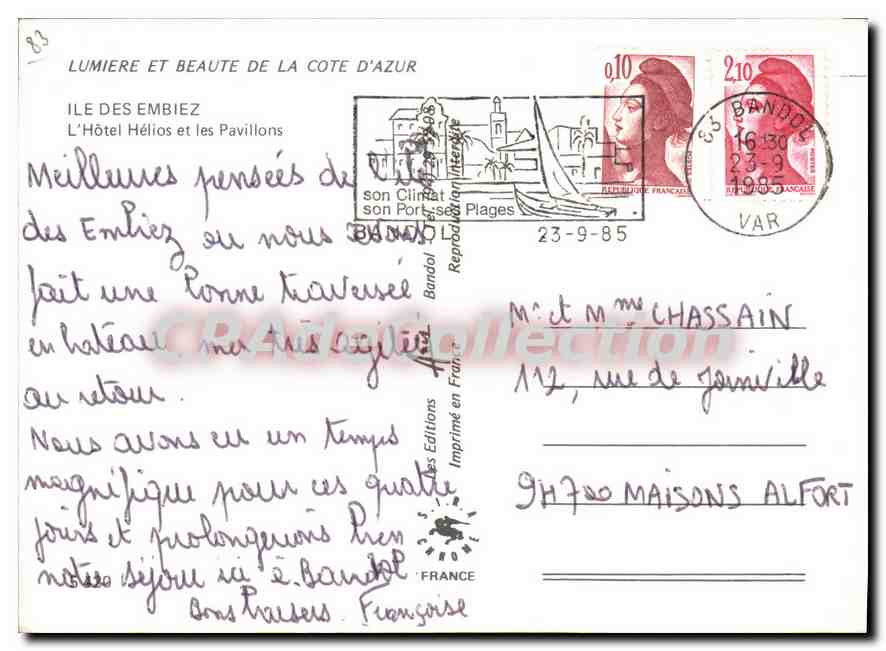 83
LUMIERE ET BEAUTE DE LA COTE D'AZUR
ILE DES EMBIEZ
L'Hôtel Hélios et les Pavillons
Meilleures pensées de l'île
des Embiez ou nous avons
fait une bonne traversée
en bateau, mer très agitée
au retour.
Nous avons eu un temps
magnifique pour ces quatre
jours et prolongerions bien
notre séjour ici à Bandol
Bons baisers. Françoise
5 420
Les Editions
Bandol Tel. (94) 29
Imprimé en France
Reproduction interdite
SIRA
CHROME
FRANCE
son Climat
son Port ses Plages
BANDOL
23-9-85
0,10
REPUBLIQUE FRANCAISE
POSTES
2,10
REPUBLIQUE FRANCAISE
POSTES
83 BANDOL
16-30
23-9
1985
VAR
Mr et Mme CHASSAIN
112, rue de Joinville
94700 MAISONS ALFORT
CPAdeCollection